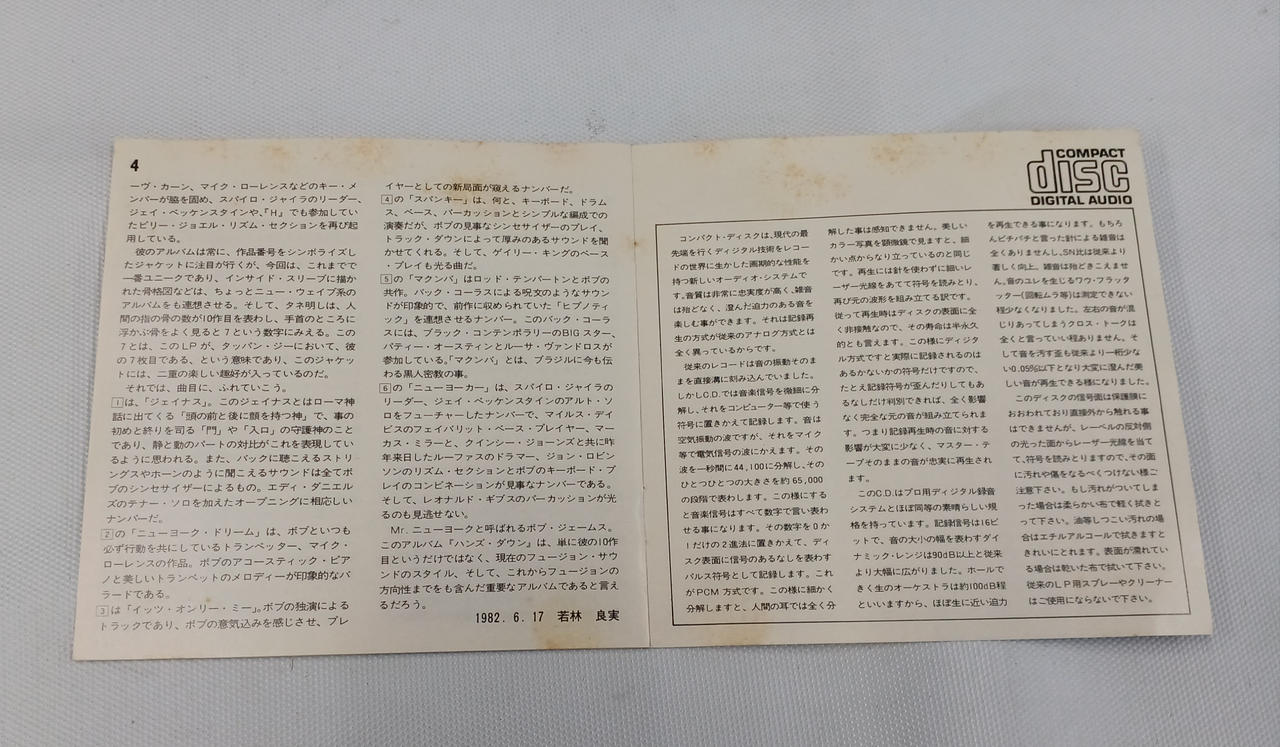 4
ーヴ・カーン、マイク・ローレンスなどのキー・メ
ンバーが脇を固め、スパイロ・ジャイラのリーダー、
ジェイ・ベッケンスタインや、「H」でも参加してい
たビリー・ジョエル・リズム・セクションを再び起
用している。
彼のアルバムは常に、作品番号をシンボライズし
たジャケットに注目が行くが、今回は、これまでで
一番ユニークであり、インサイド・スリーブに描か
れた骨格図などは、ちょっとニュー・ウェイブ系の
アルバムをも連想させる。そして、タネ明しは、人
間の指の骨の数が10作目を表わし、手首のところに
浮かぶ骨をよく見ると7という数字にみえる。この
7とは、このLPが、タッパン・ジーにおいて、彼
の7枚目である、という意味であり、このジャケッ
トには、二重の楽しい趣好が入っているのだ。
それでは、曲目に、ふれていこう。
1は、「ジェイナス」。このジェイナスとはローマ神
話に出てくる「頭の前と後に顔を持つ神」で、事の
初めと終りを司る「門」や「入口」の守護神のこと
であり、静と動のパートの対比がこれを表現してい
るように思われる。また、バックに聴こえるストリ
ングスやホーンのように聞こえるサウンドは全てボ
ブのシンセサイザーによるもの。エディ・ダニエル
ズのテナー・ソロを加えたオープニングに相応しい
ナンバーだ。
2の「ニューヨーク・ドリーム」は、ボブといつも
必ず行動を共にしているトランペッター、マイク・
ローレンスの作品。ボブのアコースティック・ピア
ノと美しいトランペットのメロディーが印象的なバ
ラードである。
3は「イッツ・オンリー・ミー」。ボブの独演による
トラックであり、ボブの意気込みを感じさせ、プレ
イヤーとしての新局面が窺えるナンバーだ。
4の「スパンキー」は、何と、キーボード、ドラム
ス、ベース、パーカッションとシンプルな編成での
演奏だが、ボブの見事なシンセサイザーのプレイ、
トラック・ダウンによって厚みのあるサウンドを聞
かせてくれる。そして、ゲイリー・キングのベース
・プレイも光る曲だ。
5の「マクンバ」はロッド・テンパートンとボブの
共作。バック・コーラスによる呪文のようなサウン
ドが印象的で、前作に収められていた「ヒプノティ
ック」を連想させるナンバー。このバック・コーラ
スには、ブラック・コンテンポラリーのBIGスター、
パティー・オースティンとルーサ・ヴァンドロスが
参加している。「マクンバ」とは、ブラジルに今も伝
わる黒人密教の事。
6の「ニューヨーカー」は、スパイロ・ジャイラの
リーダー、ジェイ・ベッケンスタインのアルト・ソ
ロをフューチャーしたナンバーで、マイルス・デイ
ビスのフェイバリット・ベース・プレイヤー、マー
カス・ミラーと、クインシー・ジョーンズと共に昨
年来日したルーファスのドラマー、ジョン・ロビン
ソンのリズム・セクションとボブのキーボード・プ
レイのコンビネーションが見事なナンバーである。
そして、レオナルド・ギブスのパーカッションが光
るのも見逃せない。
Mr. ニューヨークと呼ばれるボブ・ジェームス。
このアルバム『ハンズ・ダウン』は、単に彼の10作
目というだけではなく、現在のフュージョン・サウ
ンドのスタイル、そして、これからフュージョンの
方向性までをも含んだ重要なアルバムであると言え
るだろう。
1982. 6. 17 若林 良実
COMPACT
disc
DIGITAL AUDIO
コンパクト・ディスクは、現代の最
先端を行くディジタル技術をレコー
ドの世界に生かした画期的な性能を
持つ新しいオーディオ・システムで
す。音質は非常に忠実度が高く、雑音
は殆どなく、澄んだ迫力のある音を
楽しむ事ができます。それは記録再
生の方式が従来のアナログ方式とは
全く異っているからです。
従来のレコードは音の振動そのま
まを直接溝に刻み込んでいました。
しかしC.D.では音楽信号を微細に分
解し、それをコンピューター等で使う
符号に置きかえて記録します。音は
空気振動の波ですが、それをマイク
等で電気信号の波にかえます。その
波を一秒間に44,100に分解し、その
ひとつひとつの大きさを約65,000
の段階で表わします。この様にする
と音楽信号はすべて数字で言い表わ
せる事になります。その数字を0か
1だけの2進法に置きかえて、ディ
スク表面に信号のあるなしを表わす
パルス符号として記録します。これ
がPCM方式です。この様に細かく
分解しますと、人間の耳では全く分
解した事は感知できません。美しい
カラー写真を顕微鏡で見ますと、細
かい点からなり立っているのと同じ
です。再生には針を使わずに細いレ
ーザー光線をあてて符号を読みとり、
再び元の波形を組み立てる訳です。
従って再生時はディスクの表面に全
く非接触なので、その寿命は半永久
的とも言えます。この様にディジタ
ル方式ですと実際に記録されるのは
あるかないかの符号だけですので、
たとえ記録符号が歪んだりしてもあ
るなしだけ判別できれば、全く影響
なく完全な元の音が組み立てられま
す。つまり記録再生時の音に対する
影響が大変に少なく、マスター・テ
ープそのままの音が忠実に再生され
ます。
このC.D.はプロ用ディジタル録音
システムとほぼ同等の素晴らしい規
格を持っています。記録信号は16ビ
ットで、音の大小の幅を表わすダイ
ナミック・レンジは90dB以上と従来
より大幅に広がりました。ホールで
きく生のオーケストラは約100dB程
といいますから、ほぼ生に近い迫力
を再生できる事になります。もちろ
んピチパチと言った針による雑音は
全くありませんし、SN比は従来より
著しく向上。雑音は殆どきこえませ
ん。音のユレを生じるワウ・フラッタ
ッター(回転ムラ等)は測定できない
程少なくなりました。左右の音が混
じりあってしまうクロス・トークは
全くと言っていい程ありません。そ
して音を汚す歪も従来より一桁少な
い0.05%以下となり大変に澄んだ美
しい音が再生できる様になりました。
このディスクの信号面は保護膜に
おおわれており直接外から触れる事
はできませんが、レーベルの反対側
の光った面からレーザー光線を当て
て、符号を読みとりますので、その面
に汚れや傷をなるべくつけない様ご
注意下さい。もし汚れがついてしま
った場合は柔らかい布で軽く拭きと
って下さい。油等しつこい汚れの場
合はエチルアルコールで拭きますと
きれいにとれます。表面が濡れてい
る場合は乾いた布で拭いて下さい。
従来のLP用スプレーやクリーナー
はご使用にならないで下さい。